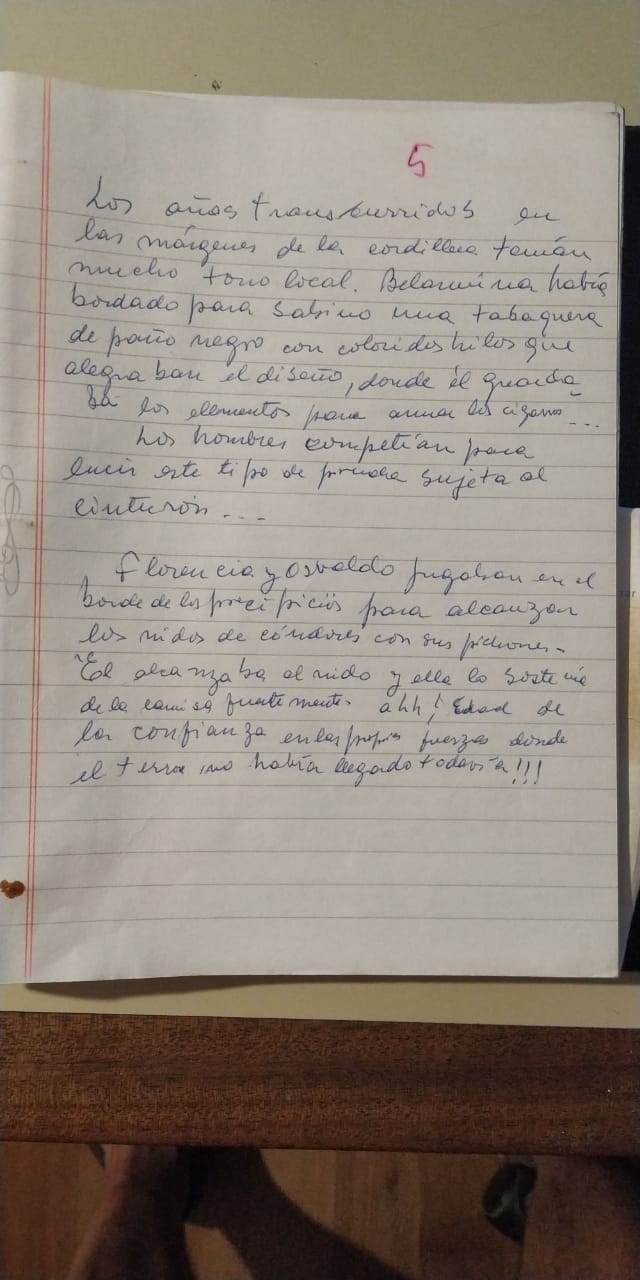 5
Los años transcurridos en
las márgenes de la cordillera tenían
mucho tono local. Belarmina había
bordado para Sabino una tabaquera
de paño negro con coloridos hilos que
alegraban el diseño, donde él guarda-
ba los elementos para armar los cigarros...
Los hombres competían para
lucir este tipo de prenda sujeta al
cinturón...
Florencia y Osvaldo jugaban en el
borde de los precipicios para alcanzar
los nidos de cóndores con sus pichones.
El alcanzaba al nido y ella lo sostenía
de la camisa fuertemente. ahh! Edad de
la confianza en las propias fuerzas donde
el terror no había llegado todavía!!!